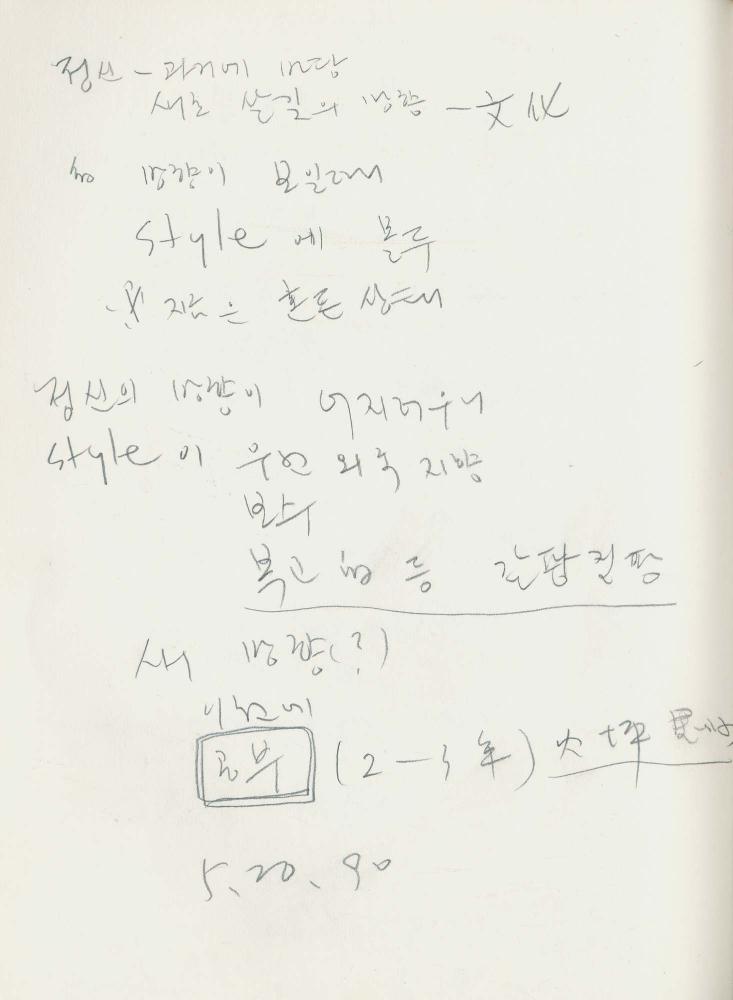 정신 - 과거에 바탕
새로 살길의 방향 - 文化
방향이 보일때
style에 몰두
지금은 혼돈 상태
정신의 방향이 어지러우니
style이 우선 외국 지향
보수
복고 등 갈팡질팡
새 방향(?)
이전에
공부 (2-3年)
5.20.90